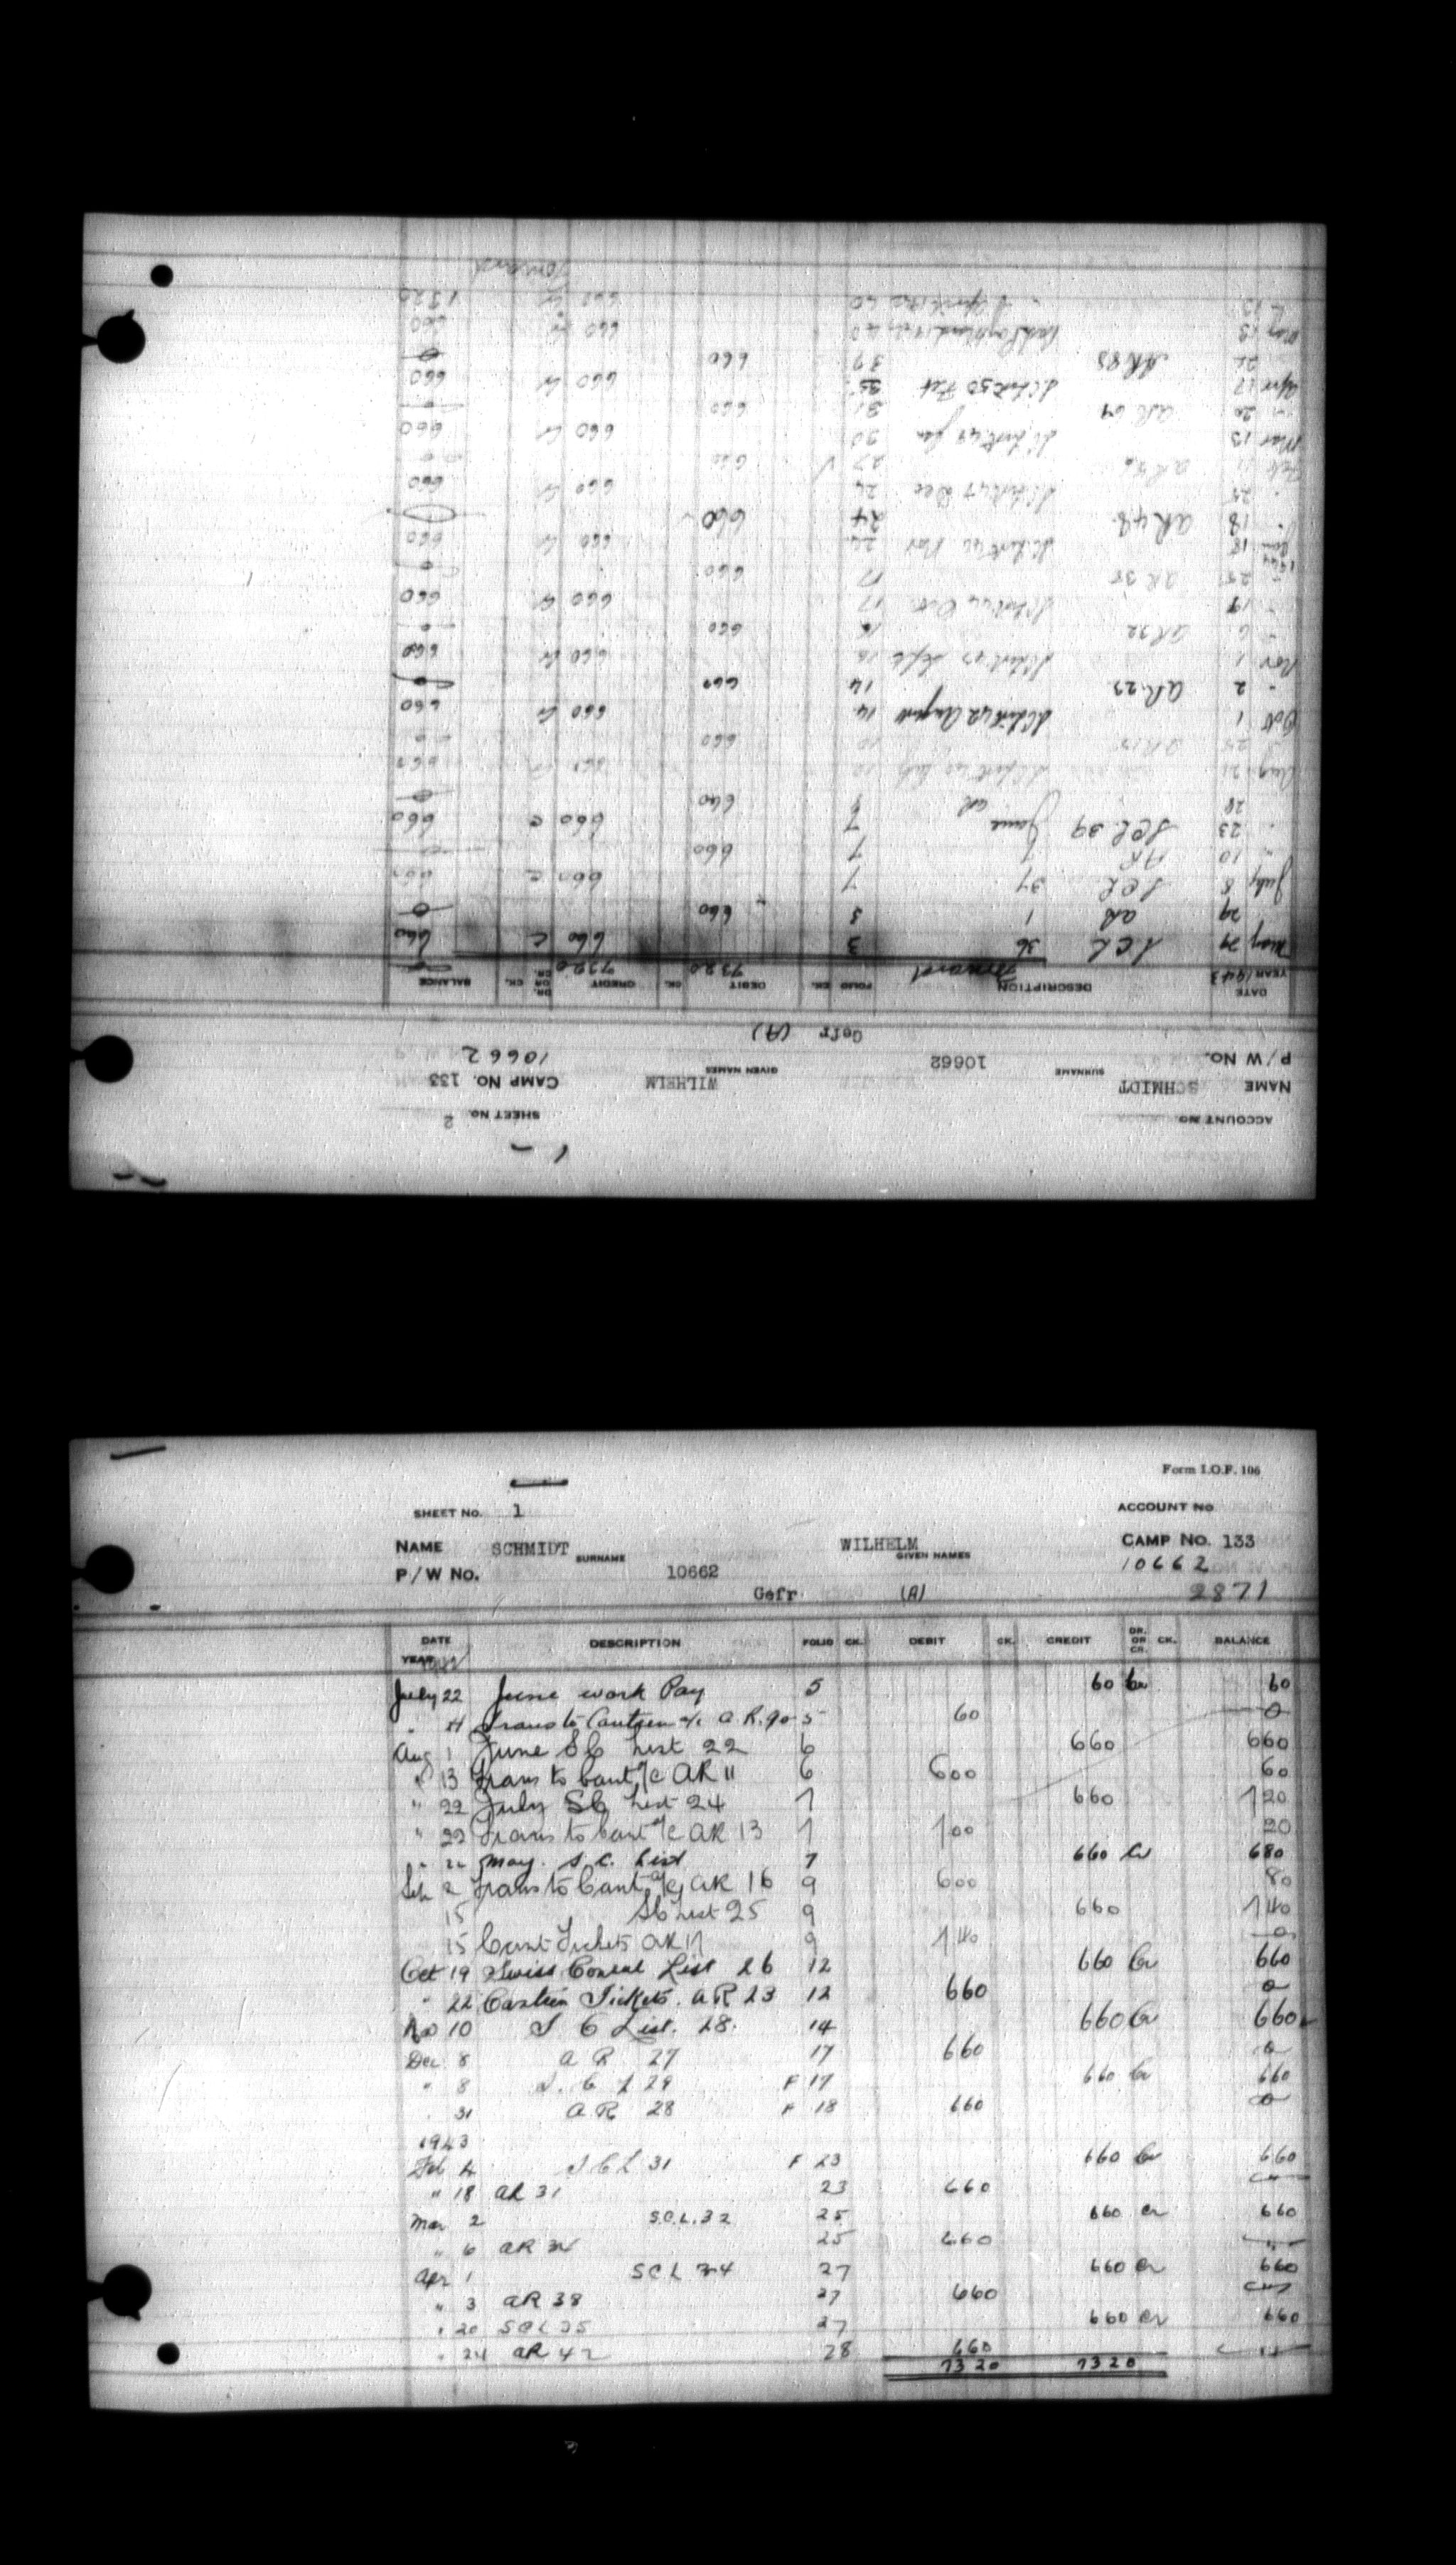 Form I.O.F. 106
SHEET NO. 1 ACCOUNT NO
NAME SCHMIDT SURNAME WILHELM GIVEN NAMES CAMP NO. 133
P/W No. 10662 10662
Gefr (A) 2871
DATE YEAR DESCRIPTION FOLIO CK. DEBIT CK. CREDIT DR. OR CR. CK. BALANCE
July 22 June work Pay 5 60 Cr 60
Trans to Canteen a/c A.R. 90 5 60 0
Aug 1 June SC List 22 6 660 660
" 13 Trans to Cant a/c AR 11 6 600 60
" 22 July SC List 24 7 660 720
" 22 Trans to Cant a/c AR 13 7 700 20
" 22 May. S.C. List 7 660 Cr 680
Sep 2 Trans to Cant a/c AR 16 9 600 80
15 SC List 25 9 660 740
15 Cant Tickets AR 17 9 740 0
Oct 19 Swiss Consul List 26 12 660 Cr 660
" 22 Canteen Tickets. AR 23 12 660 0
Nov 10 S C List. 28. 14 660 Cr 660
Dec 8 A R 27 17 660 0
" 8 S. C L 29 F 17 660 Cr 660
31 A R 28 F 18 660 0
1943
Feb 4 S C L 31 F 23 660 Cr 660
" 18 AR 31 23 660
Mar 2 S.C.L. 32 25 660 Cr 660
" 6 AR 25 660
Apr 1 SCL 34 27 660 Cr 660
" 3 AR 38 27 660
" 20 SCL 35 27 660 Cr 660
" 24 AR 42 28 660
7320 7320
ACCOUNT NO SHEET NO. 2
NAME SCHMIDT SURNAME WILHELM GIVEN NAMES CAMP NO. 133
P/W No. 10662 10662
Gefr (A)
DATE YEAR 1943 DESCRIPTION FOLIO CK. DEBIT CK. CREDIT DR. OR CR. CK. BALANCE
Forward 7320 7320
May 29 SCL 36 3 660 C 660
29 AR 1 3 660 0
July 8 SCL 37 7 660 C 660
" 10 AR 7 660
" 23 SCL 39 June 7 660 C 660
28 AR 8 660 0
Aug 21 10 660 660
25 10 660 0
Oct 1 SC List 42 August 14 660 Cr 660
" 2 AR 23 14 660 0
Nov 1 SC List Sept 16 660 Cr 660
" 6 AR 32 16 660 0
" 19 SC List Oct. 17 660 Cr 660
" 25 AR 38 17 660 0
1944
Jan 18 SC List 46 Nov 24 660 Cr 660
" 18 AR 48 24 660 0
" 25 SC List 47 Dec 24 660 Cr 660
Feb 11 27 660 0
Mar 15 SC List 49 Jan 30 660 Cr 660
" 20 AR 69 31 660 0
Apr 17 SC List 50 Feb 660 Cr 660
22 AR 83 39 660 0
May 660 Cr 660
660 Cr 1320
Forward